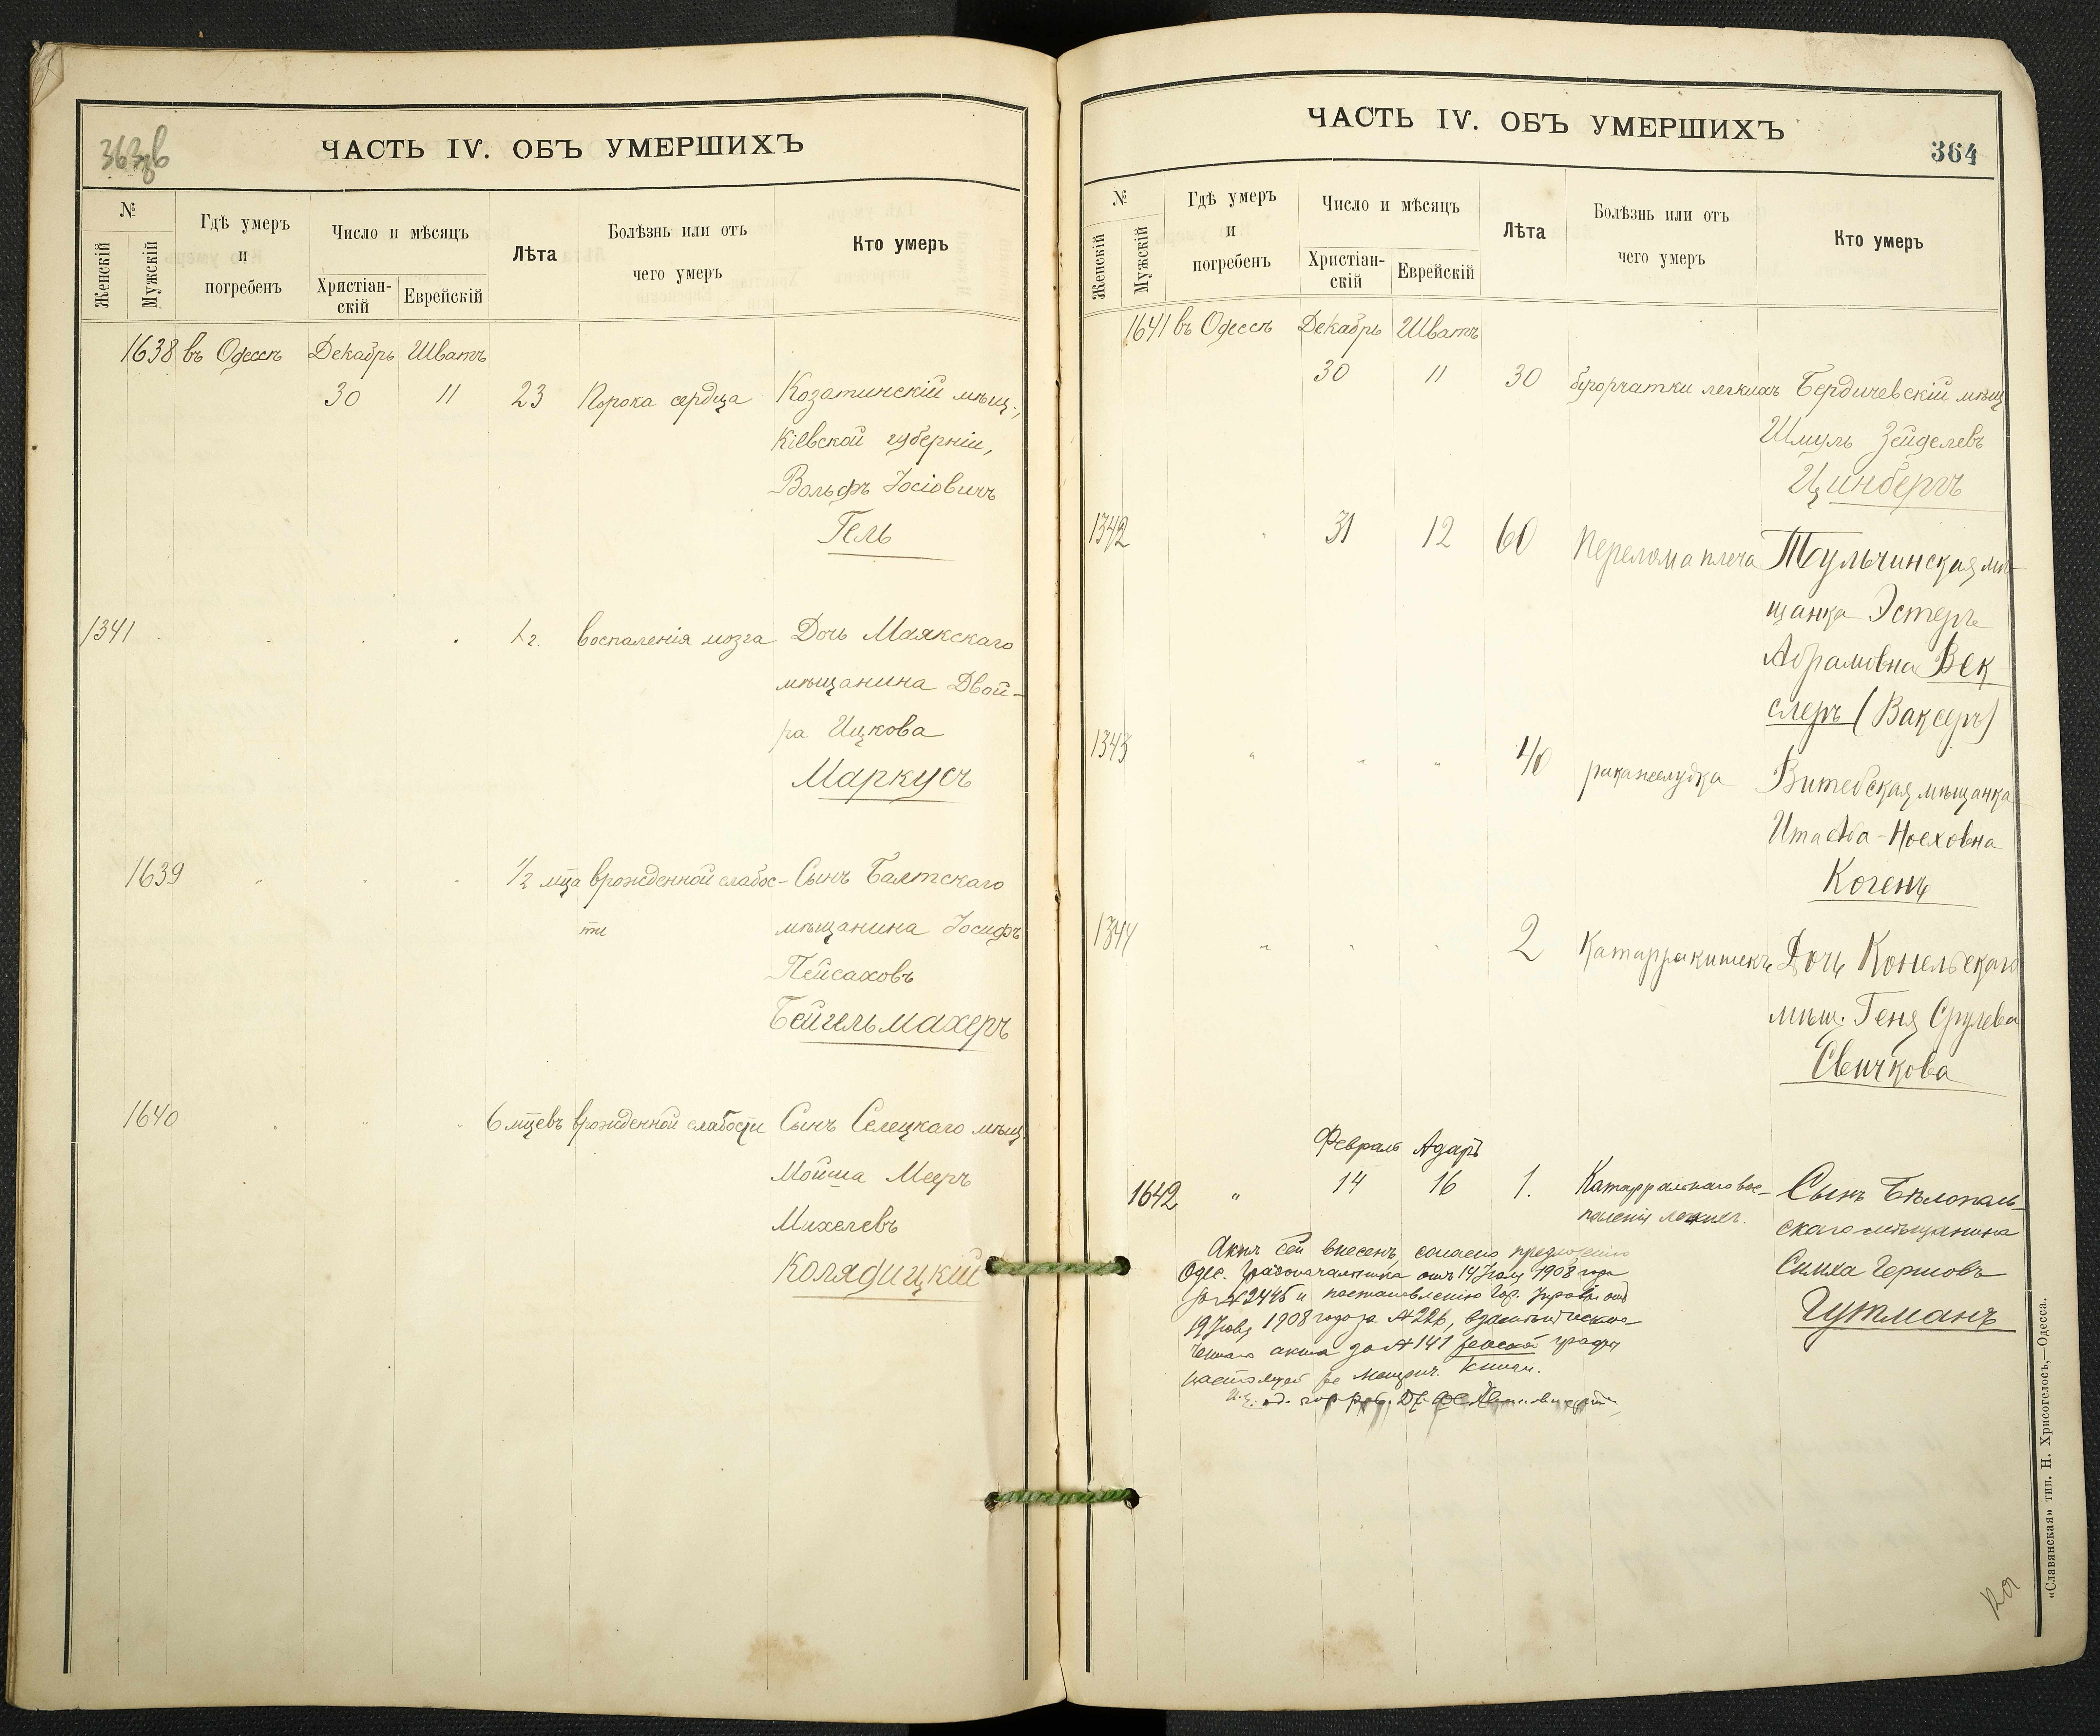 363 об
ЧАСТЬ IV. ОБЪ УМЕРШИХЪ
№
Женскій
Мужскій
Гдѣ умеръ
и
погребенъ
Число и мѣсяцъ
Христіан-
скій
Еврейскій
Лѣта
Болѣзнь или отъ
чего умеръ
Кто умеръ
1638 въ Одессѣ Декабрь Шватъ
30 11 23 Порока сердца Козатинскій мѣщ.,
Кіевской губерніи,
Вольфъ Іосіовичъ
Гель
1341 1 г. воспаленія мозга Дочь Маякскаго
мѣщанина Двой-
ра Ицкова
Маркусъ
1639 " 1/2 мца врожденной слабос- Сынъ Балтскаго
ти мѣщанина Іосифъ
Пейсаховъ
Бейгельмахеръ
1640 6 мцевъ врожденной слабости Сынъ Селецкаго мѣщ.
Мойша Мееръ
Михелевъ
Колядицкій
ЧАСТЬ IV. ОБЪ УМЕРШИХЪ
364
№
Женскій
Мужскій
Гдѣ умеръ
и
погребенъ
Число и мѣсяцъ
Христіан-
скій
Еврейскій
Лѣта
Болѣзнь или отъ
чего умеръ
Кто умеръ
1641 въ Одессѣ Декабрь Шватъ
30 11 30 бугорчатки легкихъ Бердичевскій мѣщ
Шмуль Зейделевъ
Цинбергъ
1342 " 31 12 60 Перелома плеча Тульчинская мѣ-
щанка Эстеръ
Абрамовна Век
слеръ (Вакеръ)
1343 " " " 40 рака желудка Витебская мѣщанка
Ита Ноеховна
Когенъ
1344 " " " 2 Катарра кишекъ Дочь Конельскаго
мѣщ. Геня Срулева
Свичкова
Февраль Адаръ
1642 " 14 16 1. Катарральнаго вос- Сынъ Бѣлополь-
паленія легкихъ. скаго мѣщанина
Симха Гершовъ
Гутманъ
Актъ сей внесенъ согласно предложенію
Одес. Градоначальника отъ 14 1908 года
за № 2446 и постановленію Гор. Управы отъ
19 1908 года за № 226, взамѣнъ исклю-
ченнаго акта за № 141 женской графы
настоящей же метрич. книги.
«Славянская» тип. Н. Хрисогелосъ,—Одесса.